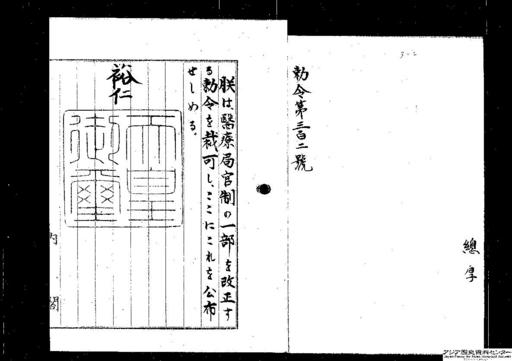 3-2
勅令第三百二號
總厚
朕は、醫療局官制の一部を改正す
る勅令を裁可し、ここにこれを公布
せしめる。
裕仁
天皇
御璽
内閣
アジア歴史資料センター